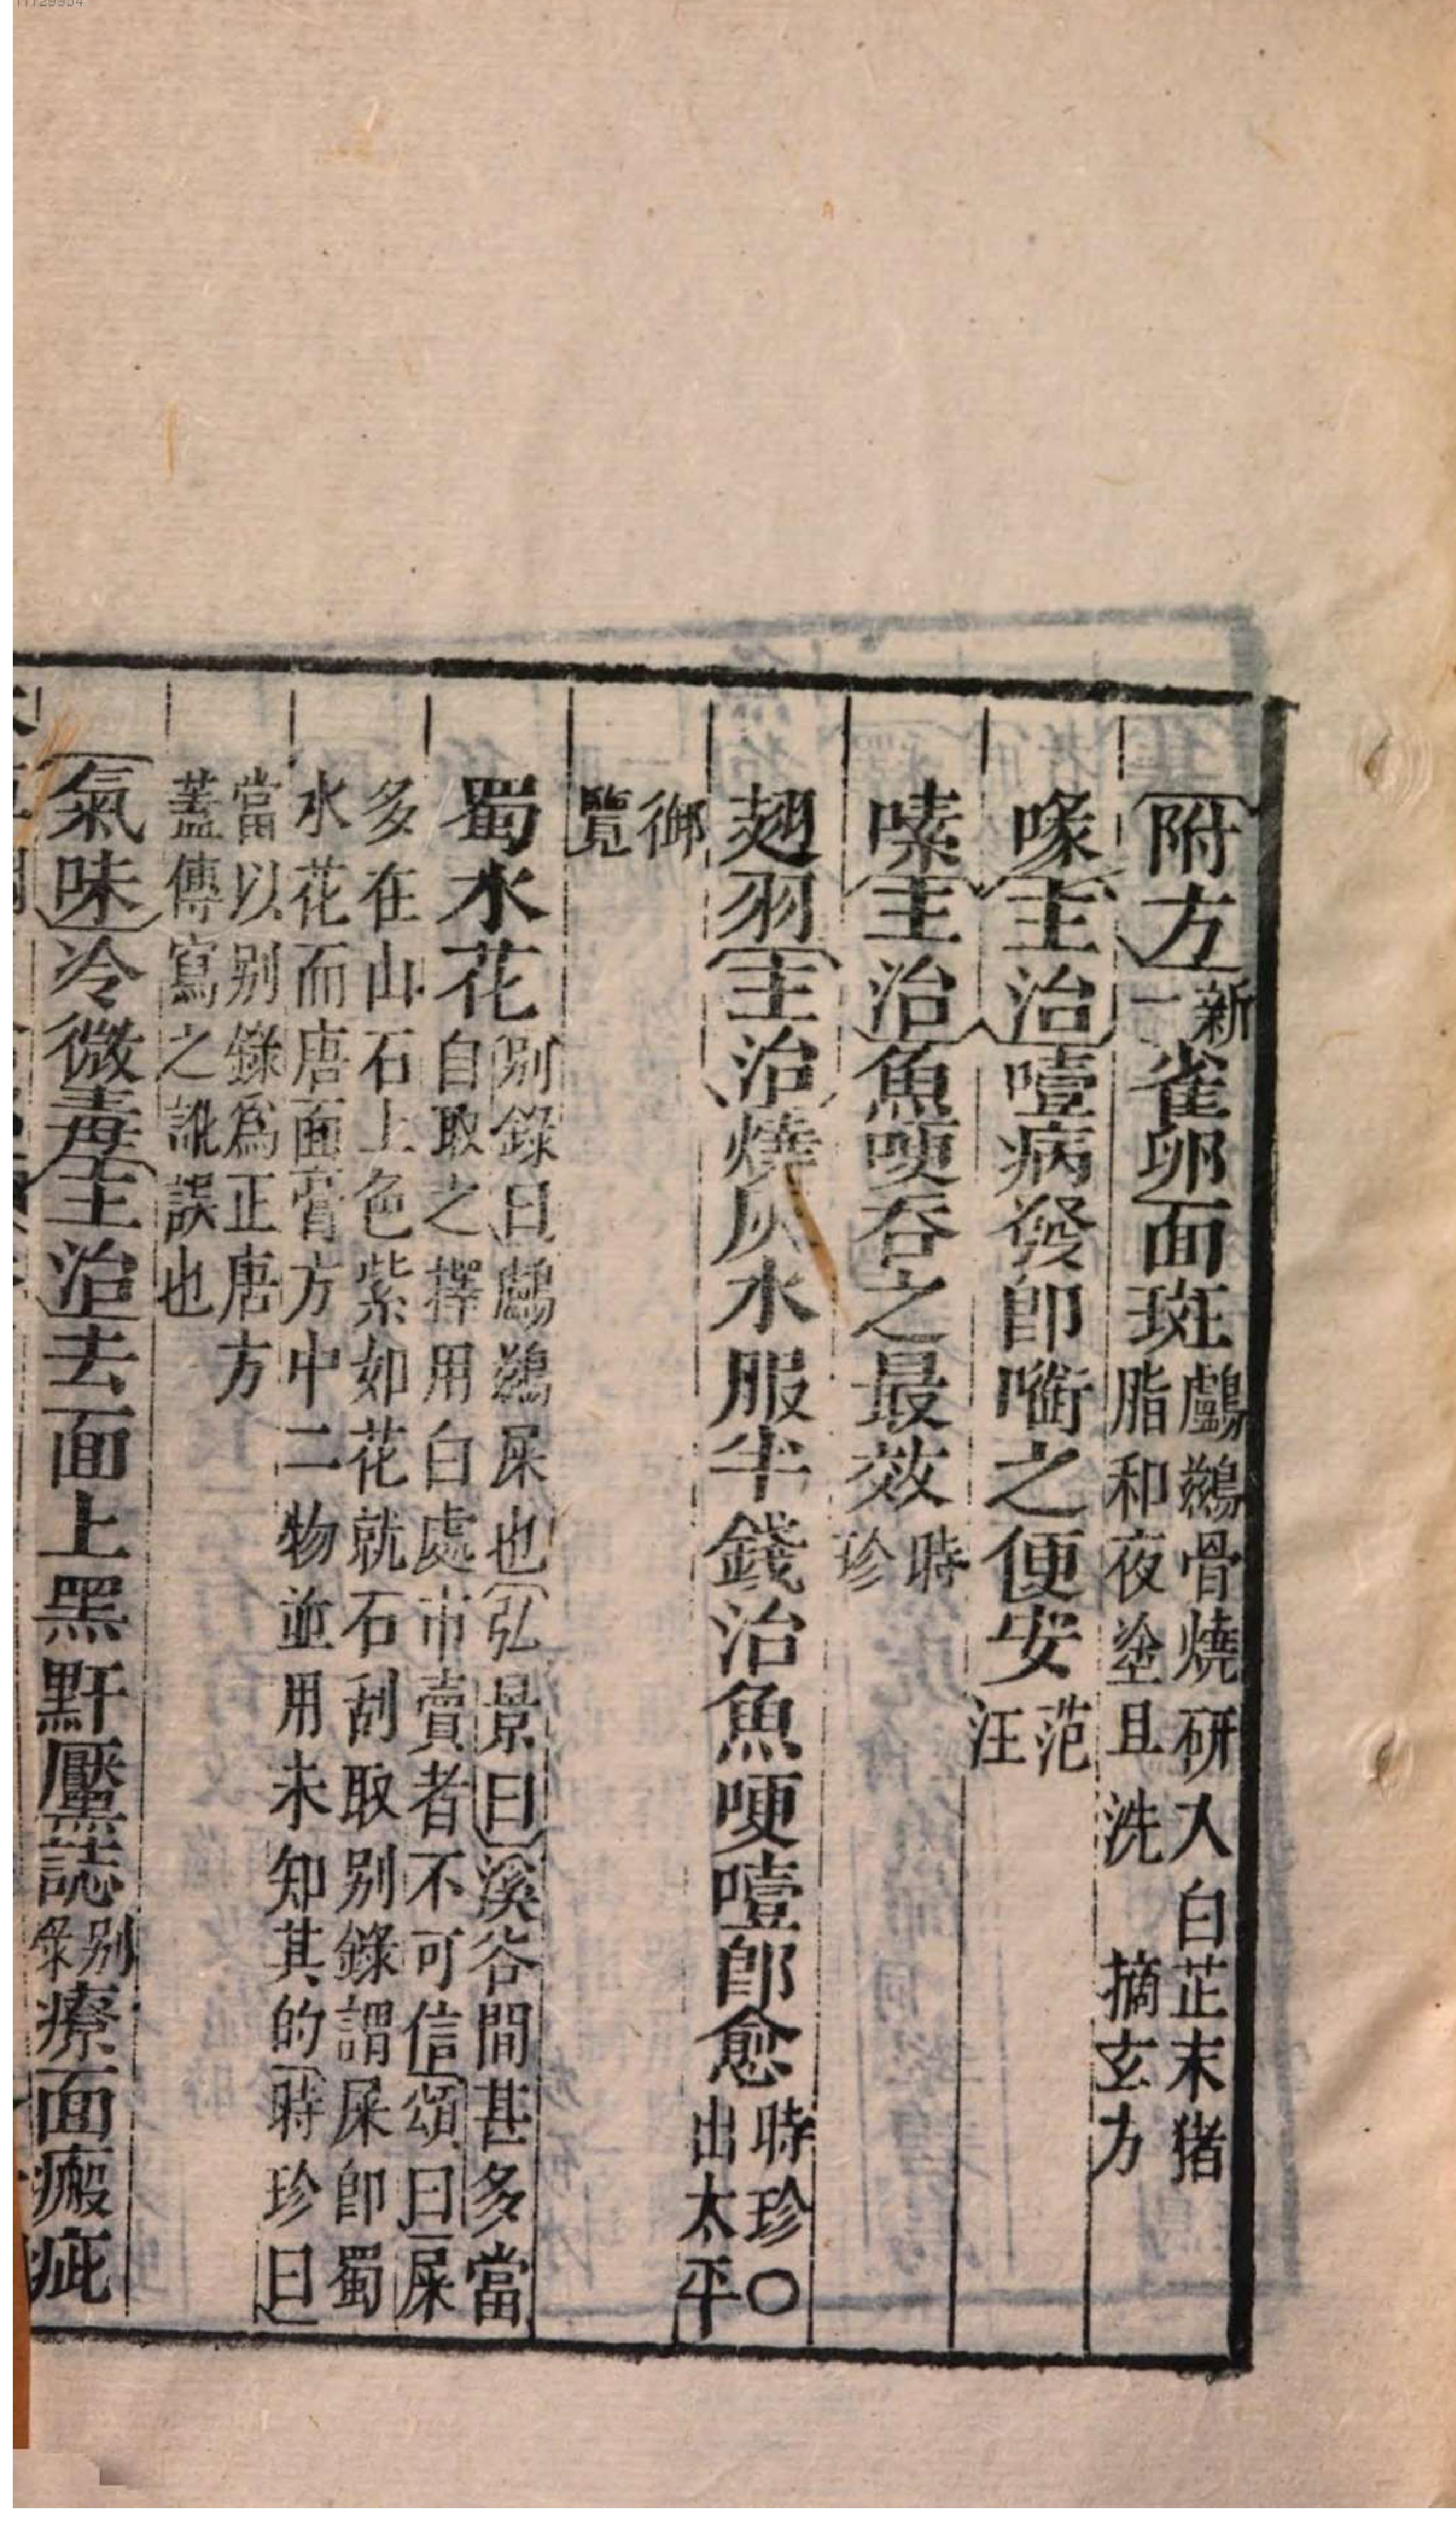 附方新一雀卵面斑鸕鷀骨燒研入白芷末猪脂和夜塗旦洗 摘玄方
喙主治噎病發卽噙之便安范汪
嗉主治魚哽吞之最效時珍
翅羽主治燒灰水服半錢治魚哽噎卽愈時珍〇出太平
御覽
蜀水花別錄曰鸕鷀屎也弘景曰溪谷間甚多當自取之擇用白處市賣者不可信頌曰屎
多在山石上色紫如花就石刮取別錄謂屎卽蜀水花而唐面膏方中二物並用未知其的時珍曰
當以別錄爲正唐方蓋傳寫之訛誤也
氣味冷微毒主治去面上黑䵟黶誌別錄療面瘢疵